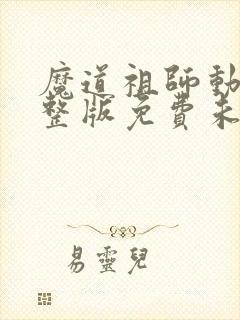 魔道祖師動
整版免費未
易靈兒